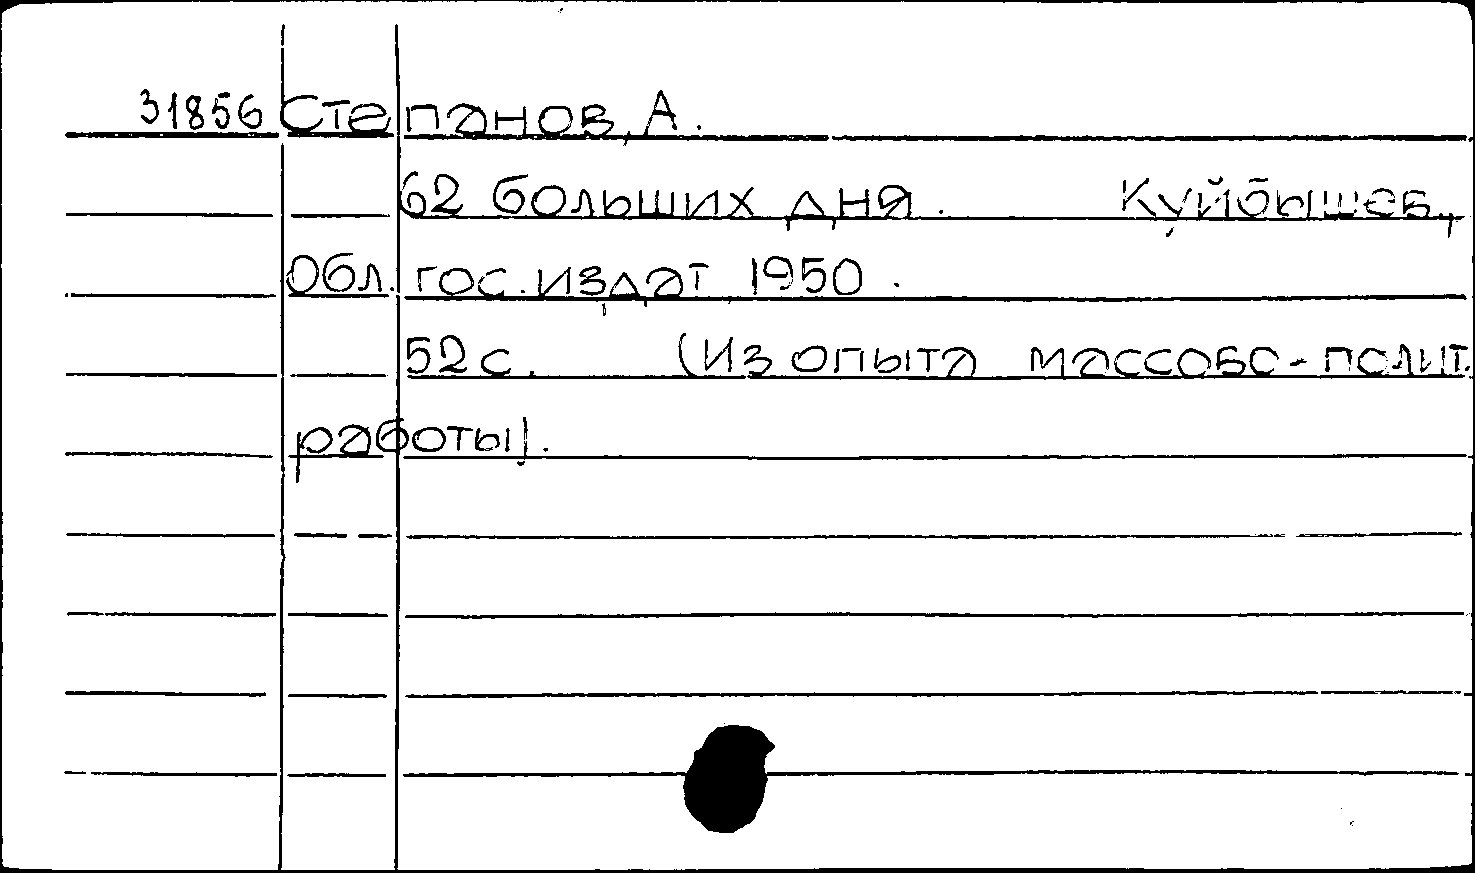 31856 Степанов, А.
62 больших дня. Куйбышев,
Обл. гос. издат 1950.
52 с. (Из опыта массово-полит.
работы).